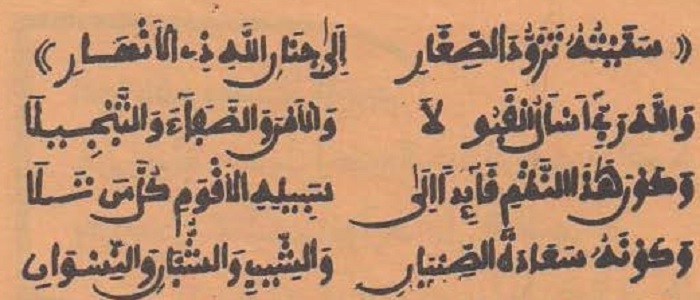 « سَمَّيْتُهُ تَزَوُّدَ الصِّغَارِ إِلَى جِنَانِ اللَّهِ ذِي الْأَنْهَارِ »
وَاللَّهَ رَبِّي أَسْأَلُ الْقَبُو لَا وَالْأَمْنَ وَالصَّفَاءَ وَالتَّبْجِيلَا
وَكَوْنَ هَذَا النَّظْمِ قَائِدًا إِلَى سَبِيلِهِ الْأَقْوَمِ كُلَّ مَنْ تَلَا
وَكَوْنَهُ سَعَادَةَ الصِّبْيَانِ وَالشِّيبِ وَالشُّبَّانِ وَالنِّسْوَانِ